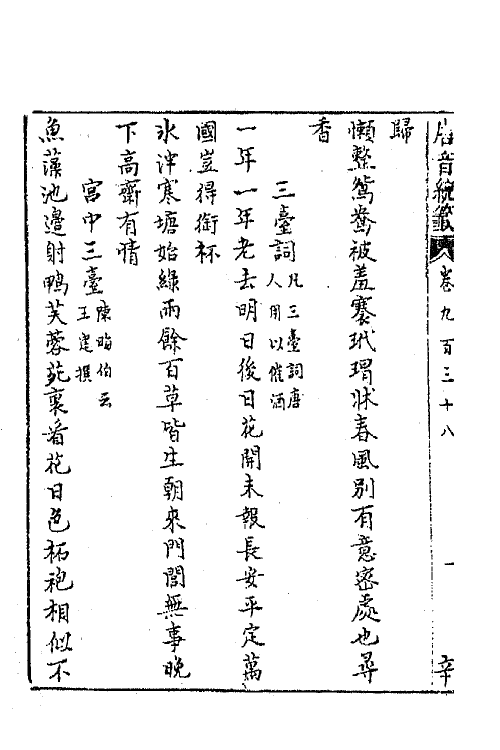 唐音統籤 卷九百三十八 一 辛
歸
懶整鴛鴦被羞褰玳瑁牀春風別有意密處也尋
香
三臺詞 凡三臺詞唐
人用以催酒
一年一年老去明日後日花開未報長安平定萬
國豈得銜杯
冰泮寒塘始綠雨餘百草皆生朝來門閤無事晚
下高齋有情
宮中三臺 陳晦伯云
王建撰
魚藻池邊射鴨芙蓉苑裏看花日色柘袍相似不